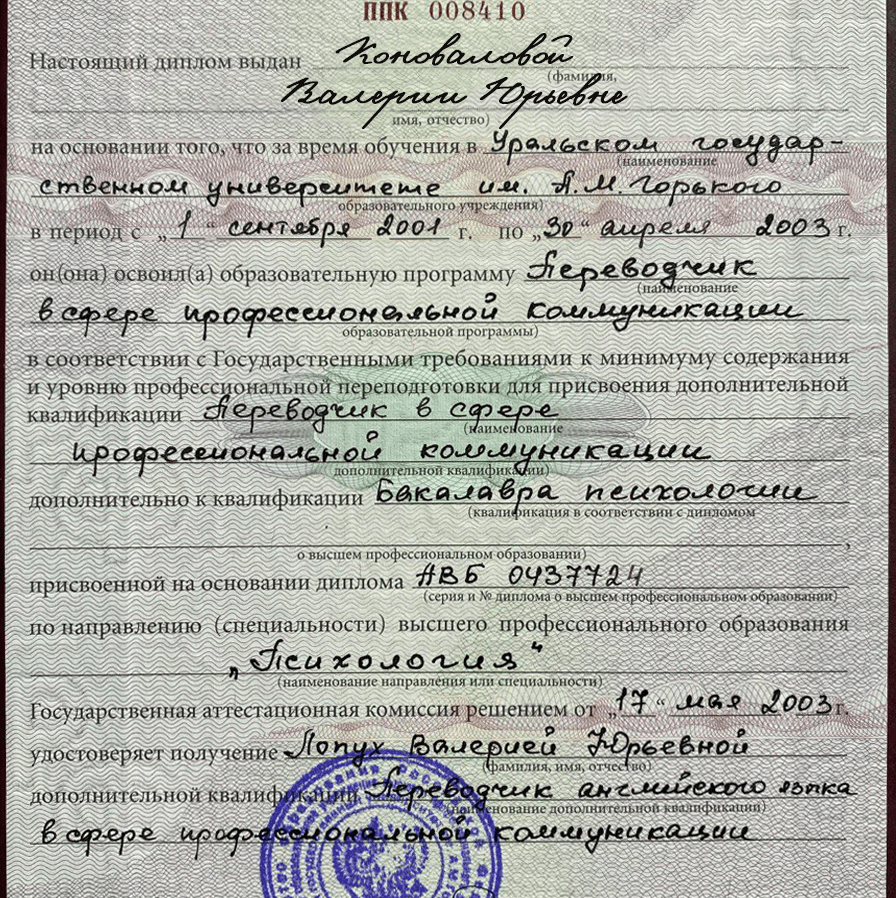 ППК 008410
Настоящий диплом выдан Коноваловой
(фамилия,
Валерии Юрьевне
имя, отчество)
на основании того, что за время обучения в Уральском государ-
(наименование
ственном университете им. А.М. Горького
образовательного учреждения)
в период с „1“ сентября 2001 г. по „30“ апреля 2003 г.
он(она) освоил(а) образовательную программу Переводчик
(наименование
в сфере профессиональной коммуникации
образовательной программы)
в соответствии с Государственными требованиями к минимуму содержания
и уровню профессиональной переподготовки для присвоения дополнительной
квалификации Переводчик в сфере
(наименование
профессиональной коммуникации
дополнительной квалификации)
дополнительно к квалификации Бакалавра психологии
(квалификация в соответствии с дипломом
,
о высшем профессиональном образовании)
присвоенной на основании диплома АВБ 0437724
(серия и № диплома о высшем профессиональном образовании)
по направлению (специальности) высшего профессионального образования
„Психология“
(наименование направления или специальности)
Государственная аттестационная комиссия решением от „17“ мая 2003 г.
удостоверяет получение Лопух Валерией Юрьевной
(фамилия, имя, отчество)
дополнительной квалификации Переводчик английского языка
(наименование дополнительной квалификации)
в сфере профессиональной коммуникации